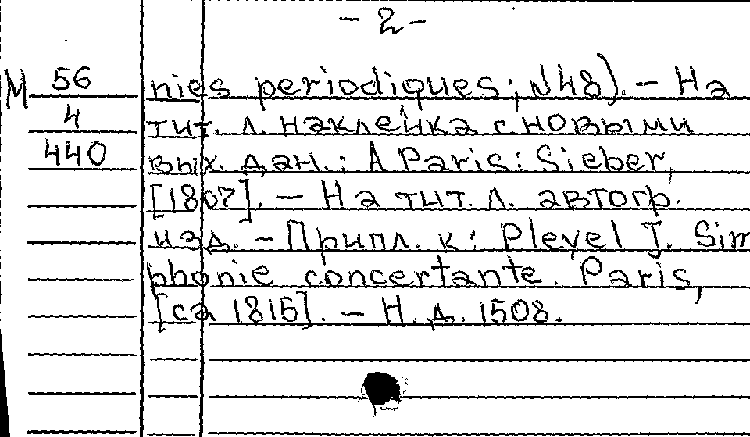 - 2 -
М 56 nies periodiques; №48). - На
4 тит. л. наклейка с новыми
440 вых. дан.: A Paris: Sieber,
[1807]. - На тит. л. автогр.
изд. - Припл. к: Pleyel J. Sim
phonie concertante. Paris,
[ca 1815]. - Н. д. 1508.